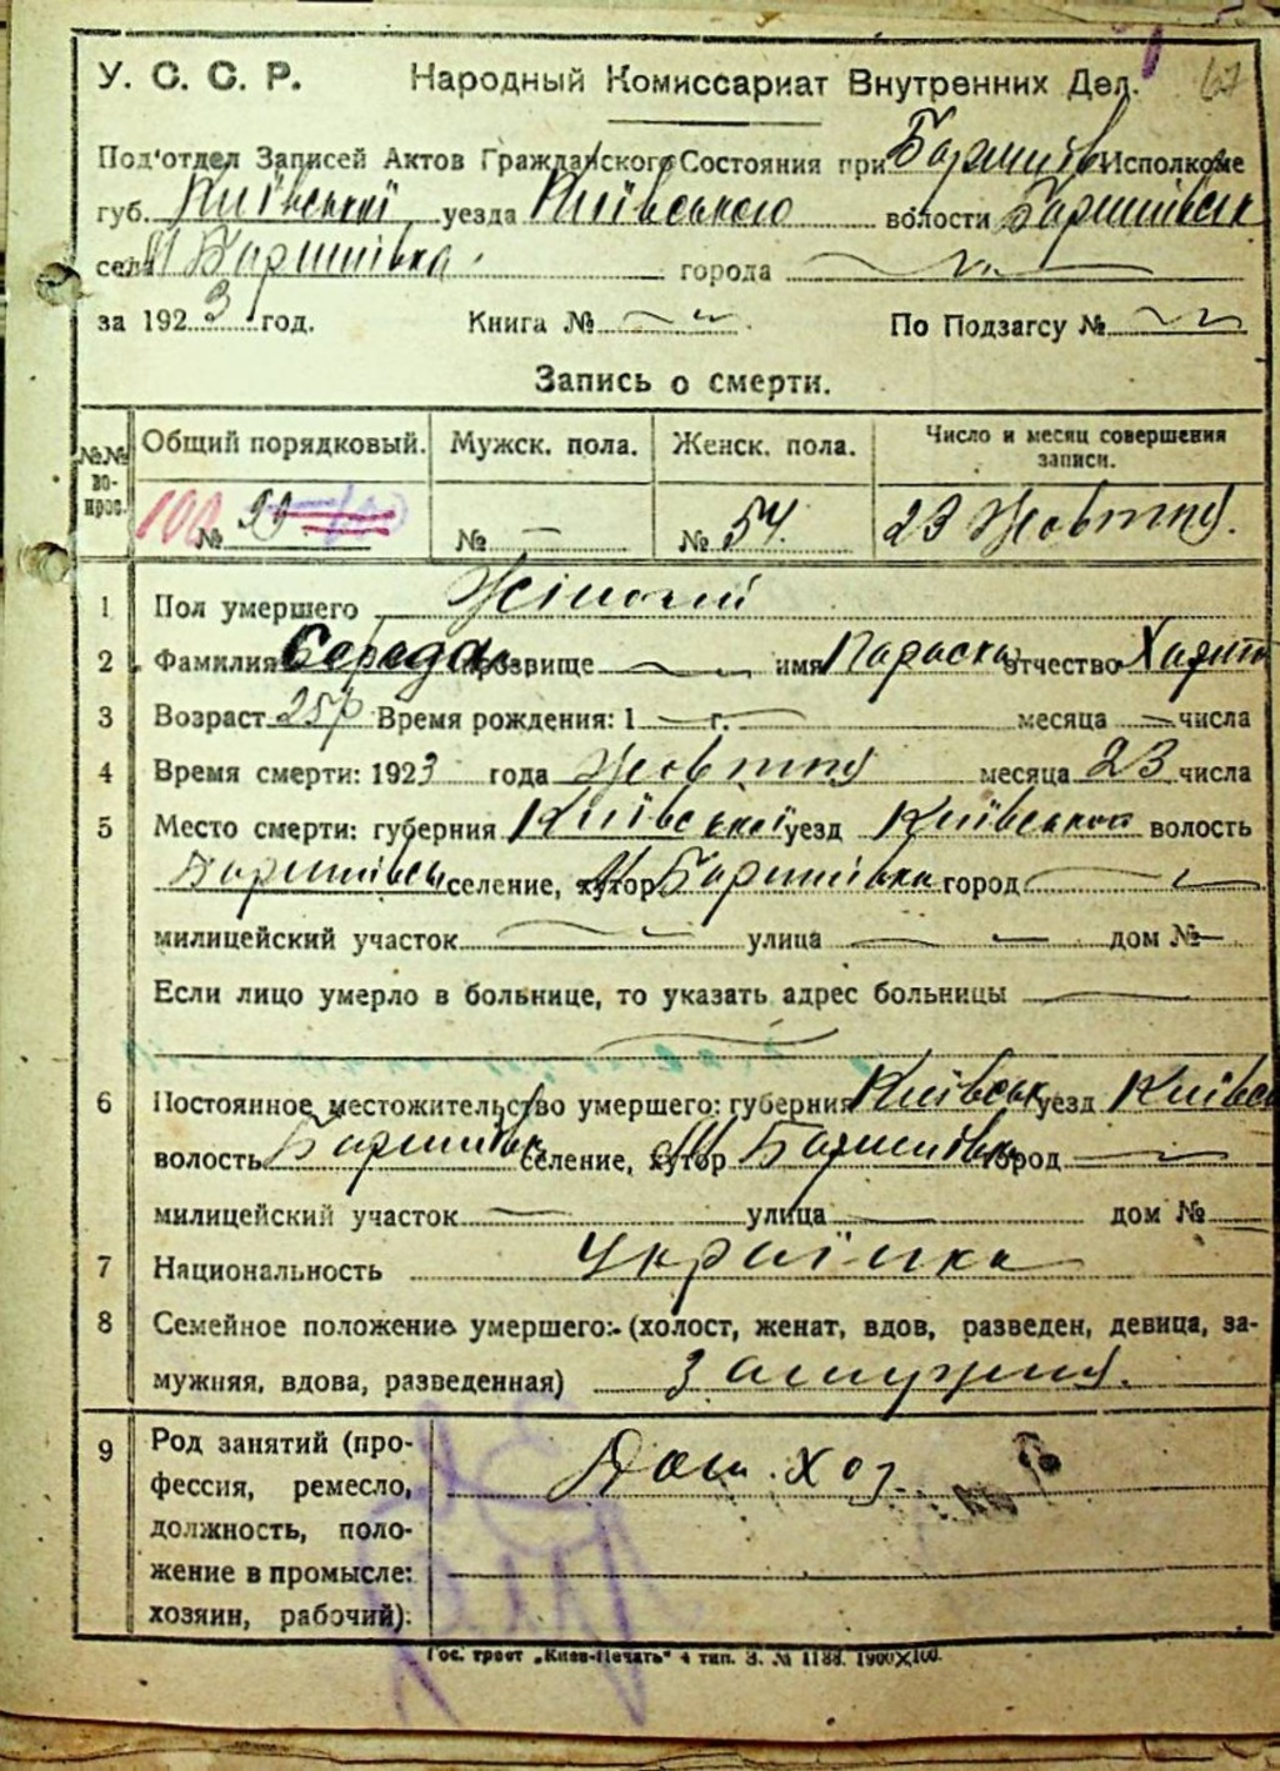 У. С. С. Р. Народный Комиссариат Внутренних Дел. 67
Под'отдел Записей Актов Гражданского Состояния при Баришів Исполкоме
губ. Київської уезда Київського волости Баришівськ
села М Баришівка города
за 1923 год. Книга № По Подзагсу №
Запись о смерти.
№№ вопрос. Общий порядковый. Мужск. пола. Женск. пола. Число и месяц совершения записи.
100 № 99 100 № — № 54. 23 Жовтня.
1 Пол умершего Жіночій
2 Фамилия Середа прозвище имя Параска отчество Харит
3 Возраст 25 р Время рождения: 1 г. месяца числа
4 Время смерти: 1923 года Жовтня месяца 23 числа
5 Место смерти: губерния Київської уезд Київського волость
Баришівськ селение, хутор М Баришівка город
милицейский участок улица дом №
Если лицо умерло в больнице, то указать адрес больницы
6 Постоянное местожительство умершего: губерния Київськ уезд Київсь
волость Баришівк селение, хутор М Баришівка город
милицейский участок улица дом №
7 Национальность Українка
8 Семейное положение умершего: (холост, женат, вдов, разведен, девица, за-
мужняя, вдова, разведенная) Замужня.
9 Род занятий (про-
фессия, ремесло,
должность, поло-
жение в промысле:
хозяин, рабочий).
Дом. хоз.
Гос. трест „Киев-Печать" 4 тип. З. № 1188. 1900×100.